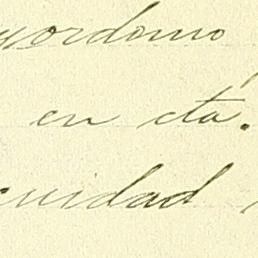 yordomo
en cta.
uidad